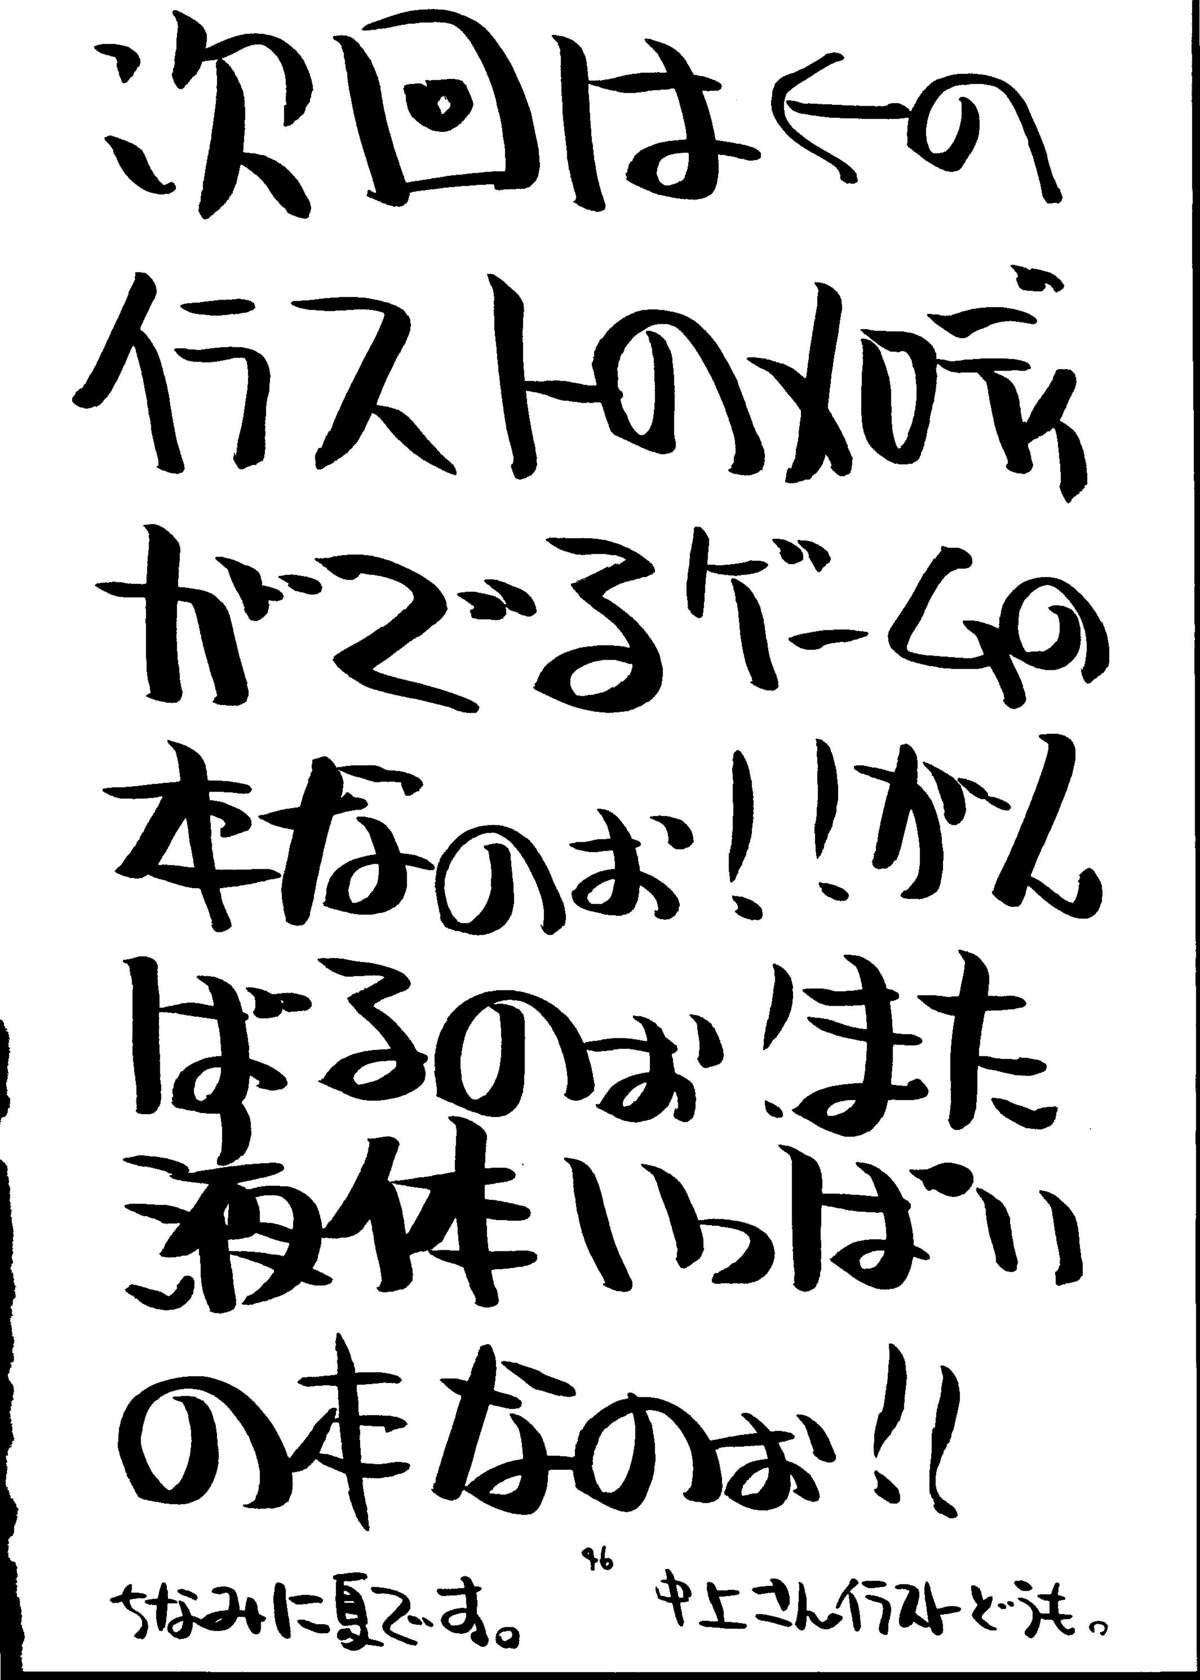 次回は←の
イラストの如意
がでるゲームの
本なのぉ！！がん
ばるのぉ！また
液体いっぱい
の本なのぉ！！
46
ちなみに夏です。
中上さんイラストどうも。